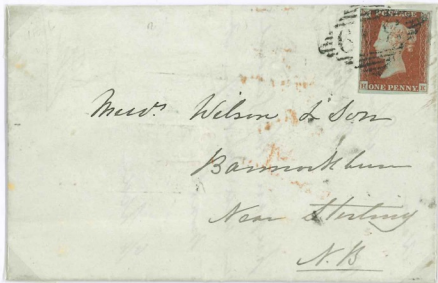 POSTAGE
ONE PENNY
Messrs Wilson & Son
Bannockburn
Near Stirling
N.B